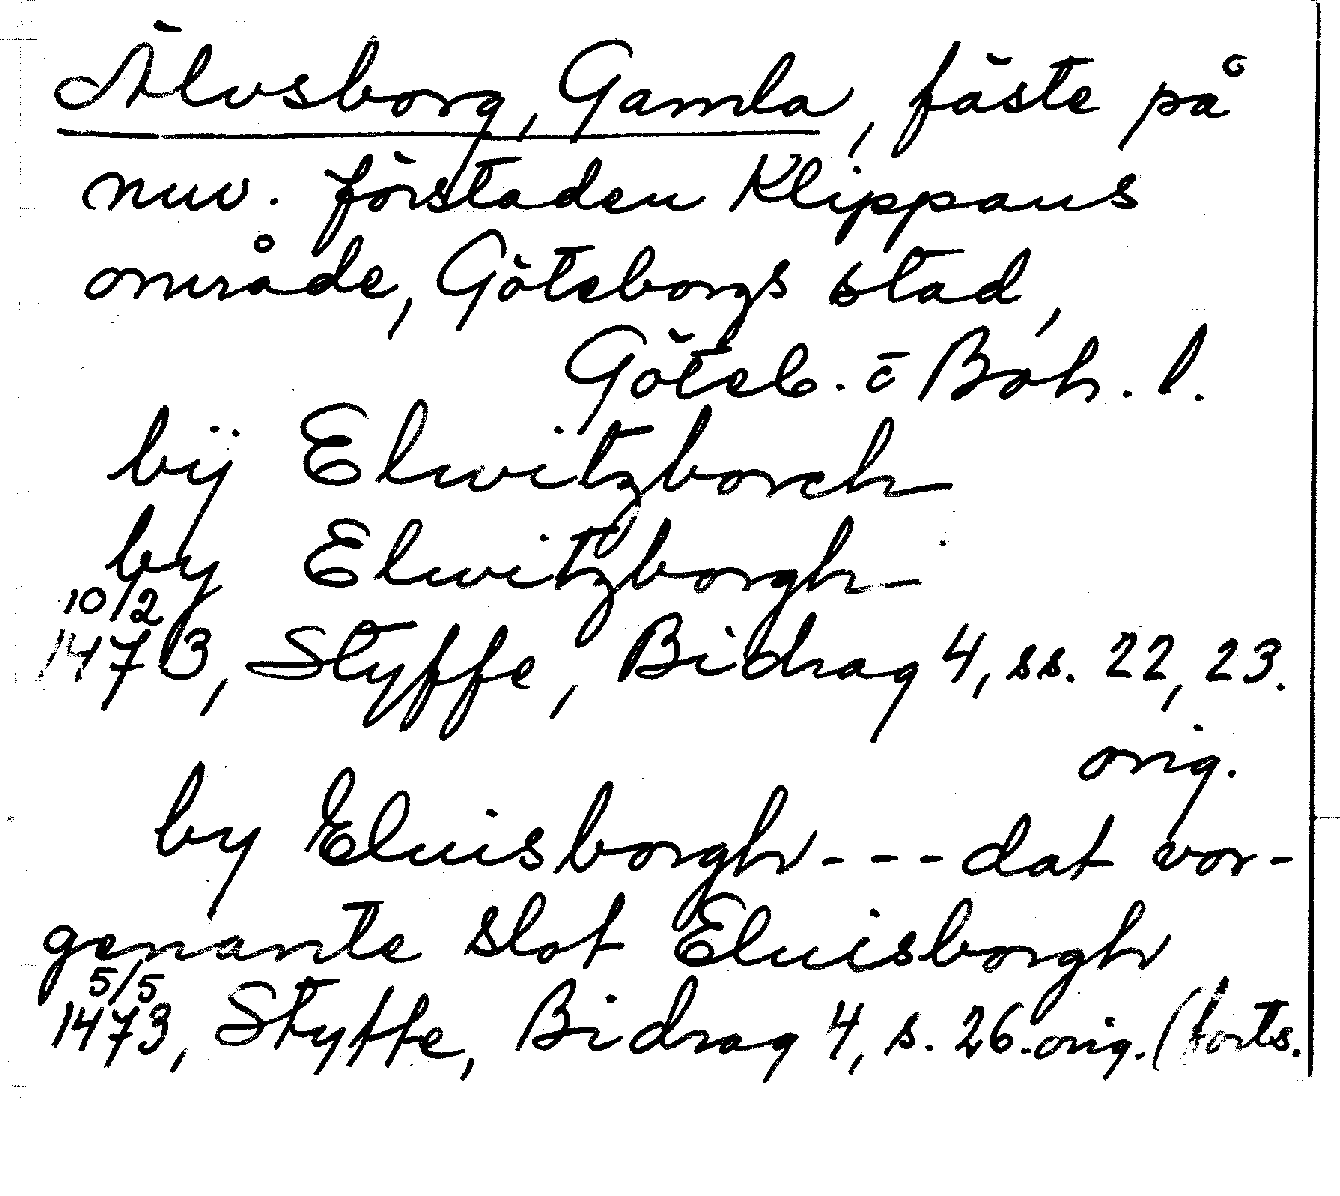 Älvsborg, Gamla, fäste på
nuv. förstaden Klippans
område, Göteborgs stad,
Göteb. o Boh. l.
bÿ Elwitzborch
by Elwitzborgh
10/2
1473, Styffe, Bidrag 4, ss. 22, 23.
orig.
by Eluisborgh --- dat vor-
genante slot Eluisborgh
5/5
1473, Styffe, Bidrag 4, s. 26. orig. (forts.